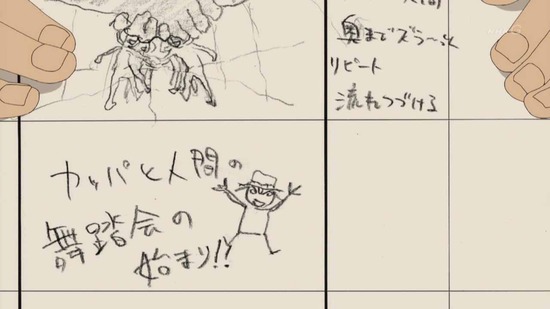 人間
奥までズラ〜っと
リピート
流れつづける
カッパと人間の
舞踏会の
始まり!!